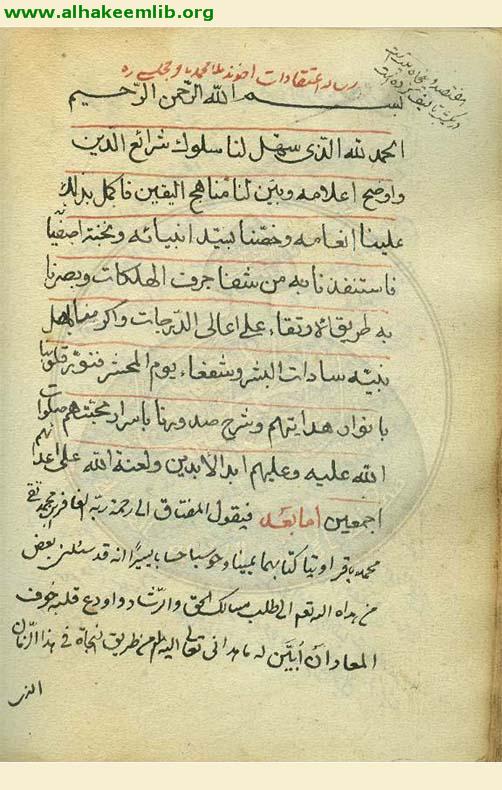 www.alhakeemlib.org
رساله اعتقادات اخوند ملا محمد باقر مجلسي ره
بسم الله الرّحمن الرّحيم
الحمد لله الّذى سهّل لنا سلوك شرائع الدّين
واوضح اعلامه وبيّن لنا مناهج اليقين فاكمل بذلك
علينا انعامه وخصّنا بسيّد انبيائه ونخبة اصفيا
فاستنقذنا به من شفا جرف الهلكات وبصرنا
به طريق الارتقاء على اعالى الدّرجات واكرمنا باهل
نبيّه سادات البشر وشفعاء يوم المحشر فنوّر قلوبنا
بانوار هدايتهم وشرح صدورنا باسرار محبّتهم صلوات
الله عليه وعليهم ابد الابدين ولعنة الله على اعدائهم
اجمعين اما بعد فيقول المفتاق الى رحمة ربّه الغافر بن محمد تقى
محمد باقر اوتيا كتابهما يمينا وحوسبا حسابا يسيرا انه قد سئلنى بعض
من هداه الله تعم الى طلب مسالك الحق والرّشاد واودع قلبه خوف
المعاد ان ابيّن له ما هدانى الله تعالى اليه من طريق النجاة فى هذا الزّمان
الذى